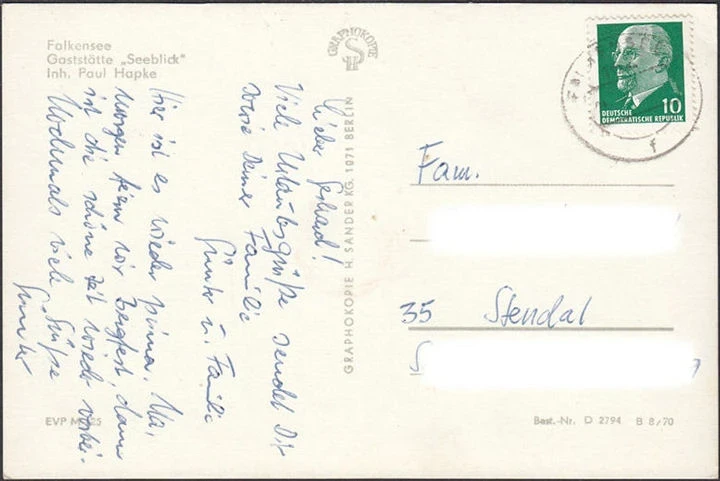 Falkensee
Gaststätte „Seeblick"
Inh. Paul Hapke
GRAPHOKOPIE
H S
DEUTSCHE
DEMOKRATISCHE REPUBLIK
10
f
GRAPHOKOPIE H. SANDER KG. 1071 BERLIN
Lieber Gerhard!
Viele Urlaubsgrüße sendet Dir
sowie Deiner Familie
Günter u. Familie
Hier ist es wieder prima. Na,
morgen feiern wir Bergfest, dann
ist die schöne Zeit wieder vorbei.
Nochmals viele Grüße
Günter
Fam.
35 Stendal
EVP M 25
Best.-Nr. D 2794 B 8/70